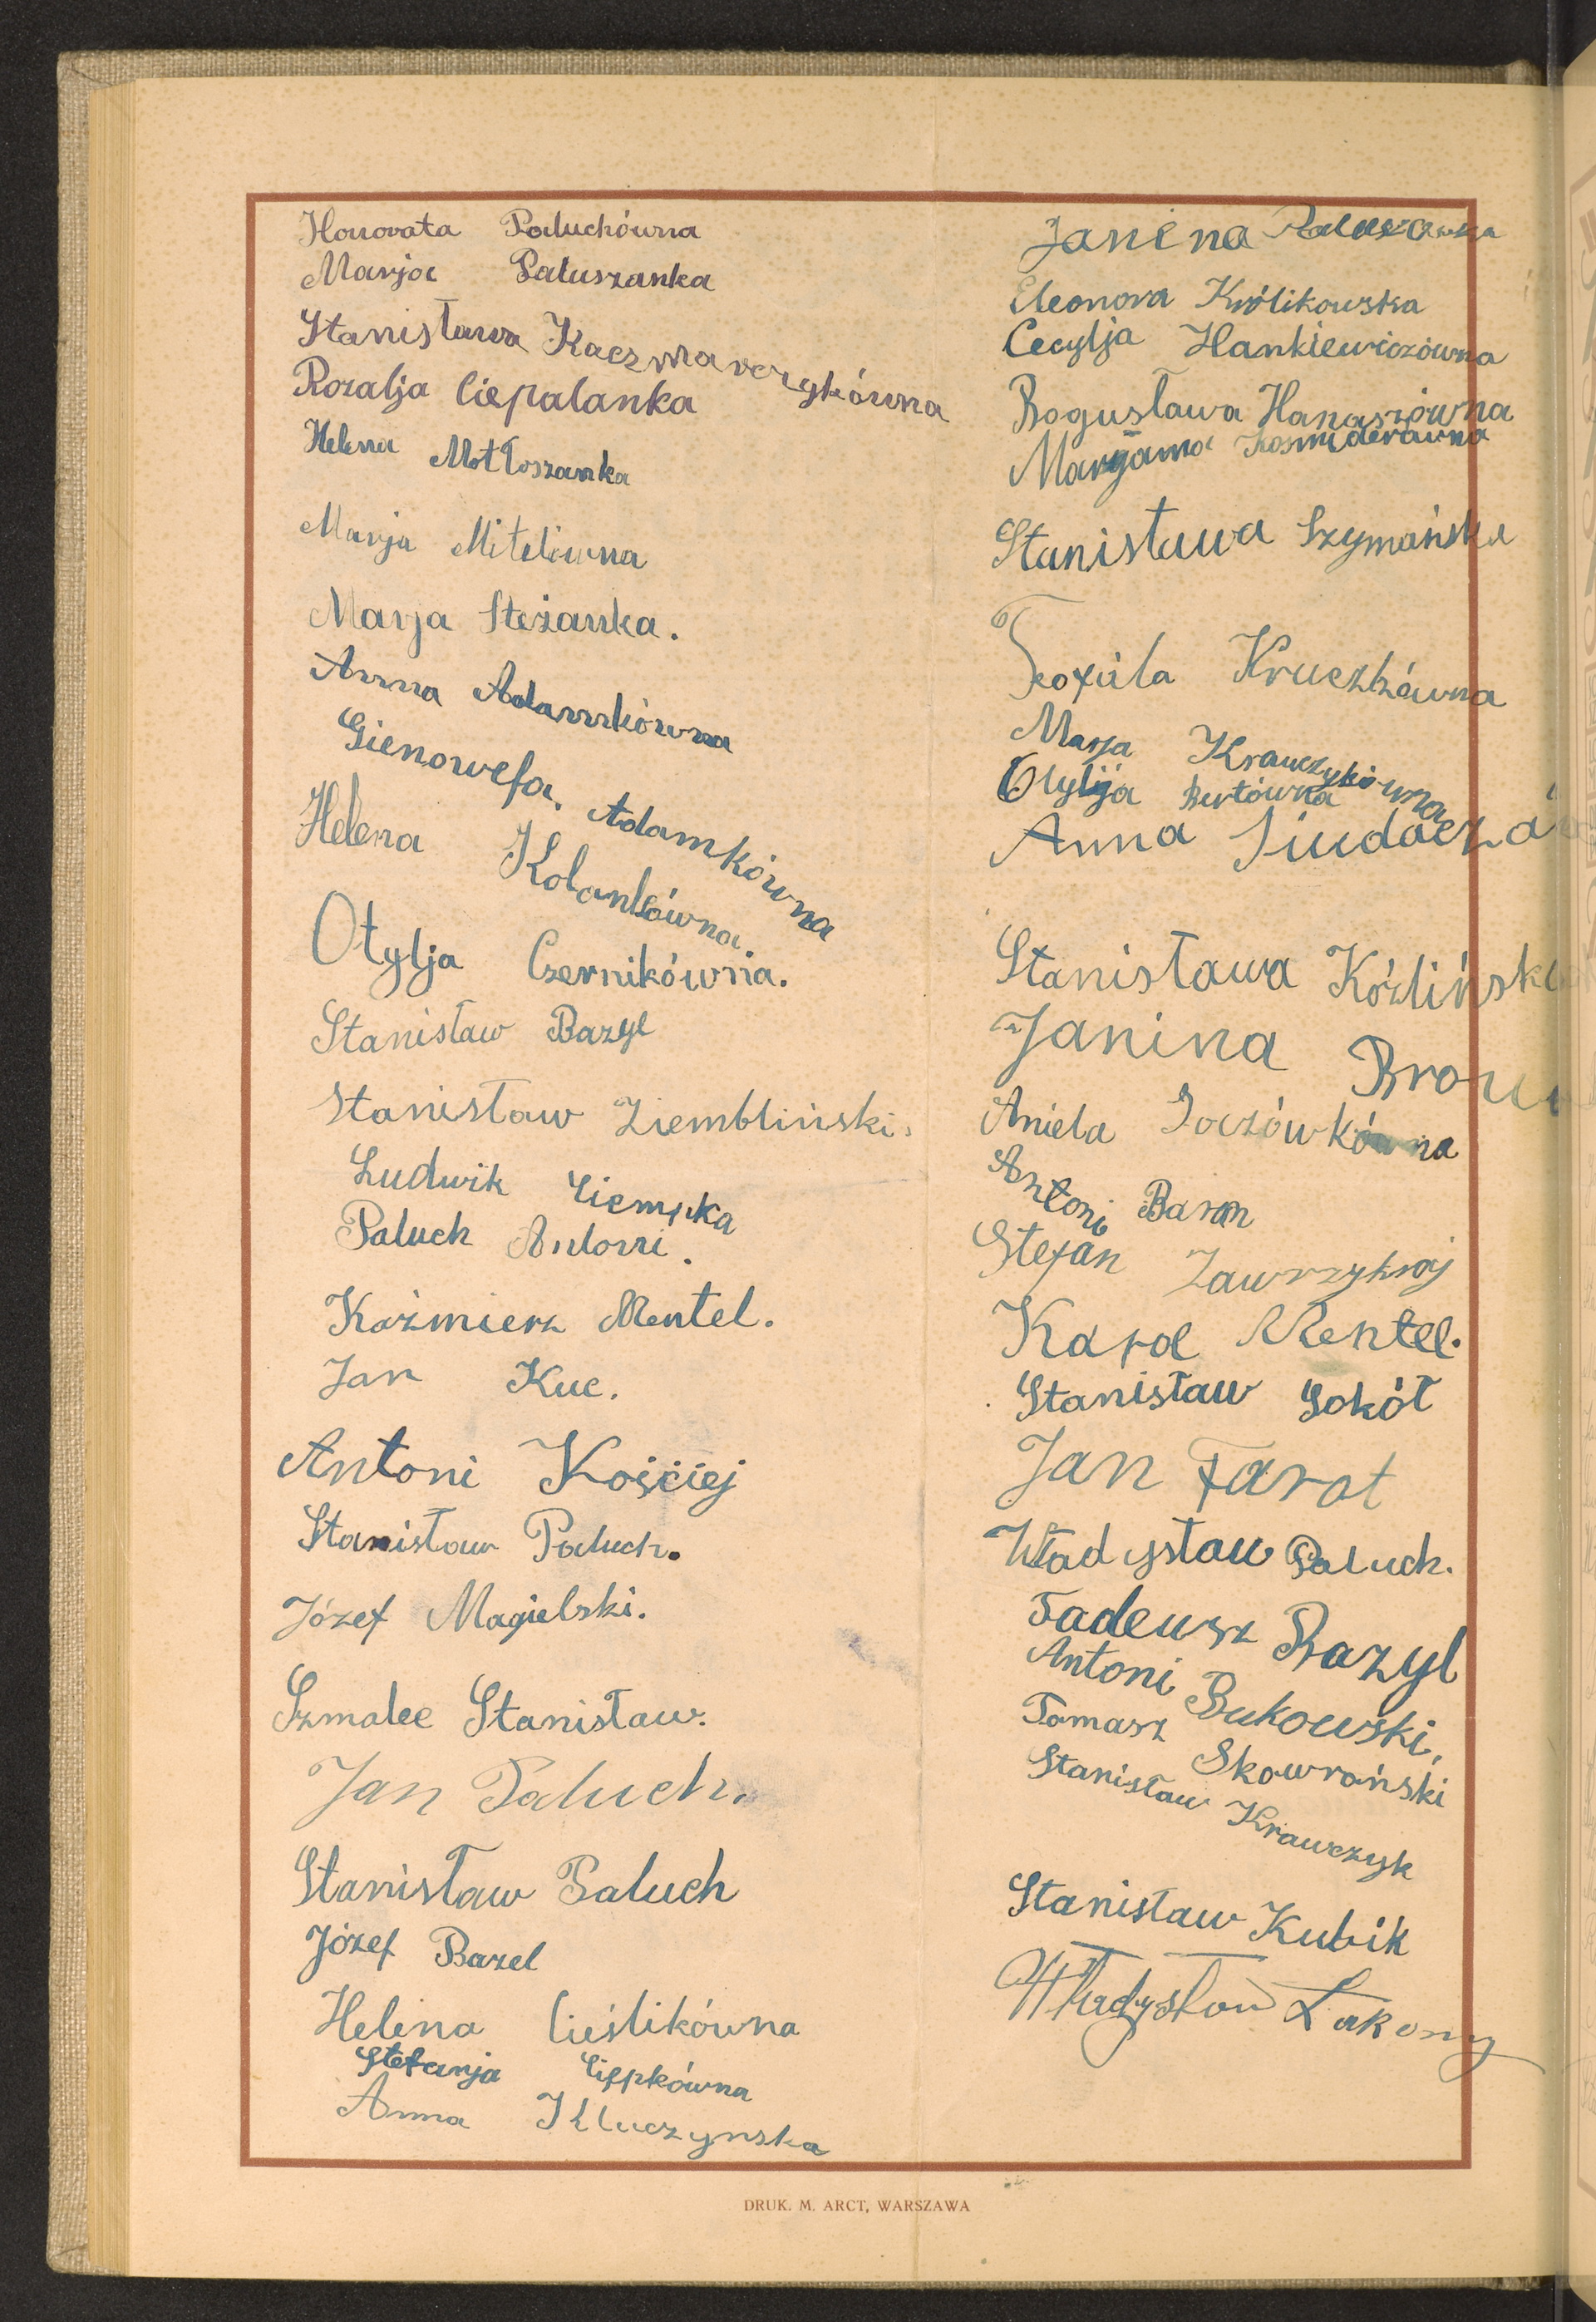 Honorata Paluchówna
Marja Paluszanka
Stanisława Kaczmarczykówna
Rozalja Ciepalanka
Helena Motłoszanka
Marja Mitelówna
Marja Steżanka.
Anna Adamkówna
Gienowefa. Adamkówna
Helena Kolankówna.
Otylja Czernikówna.
Stanisław Bazyl
Stanisław Ziembliński.
Ludwik Ciempka
Paluch Antoni.
Kaźmierz Mentel.
Jan Kuc.
Antoni Kościej
Stanisław Paluch.
Józef Magielski.
Szmalec Stanisław.
Jan Paluch.
Stanisław Paluch
Józef Bazel
Helena Cieślikówna
Stefanja Ciępkówna
Anna Kluczynska
Janina
Eleonora Królikowska
Cecylja Hankiewiczówna
Bogusława Hanaszówna
Marjanna Kosmiderówna
Stanisława Szymańska
Teofila Kruczkówna
Marja Krawczykówna
Otylija Burtówna
Anna
Stanisława
Janina
Aniela
Antoni Baran
Stefan Zawrzykraj
Karol Mentel.
Stanisław Sokół
Jan Farot
Władysław Paluch.
Tadeusz Bazyl
Antoni Bukowski,
Tomasz Skowroński
Stanisław Krawczyk
Stanisław Kubik
Władysław Łakomy
DRUK. M. ARCT, WARSZAWA